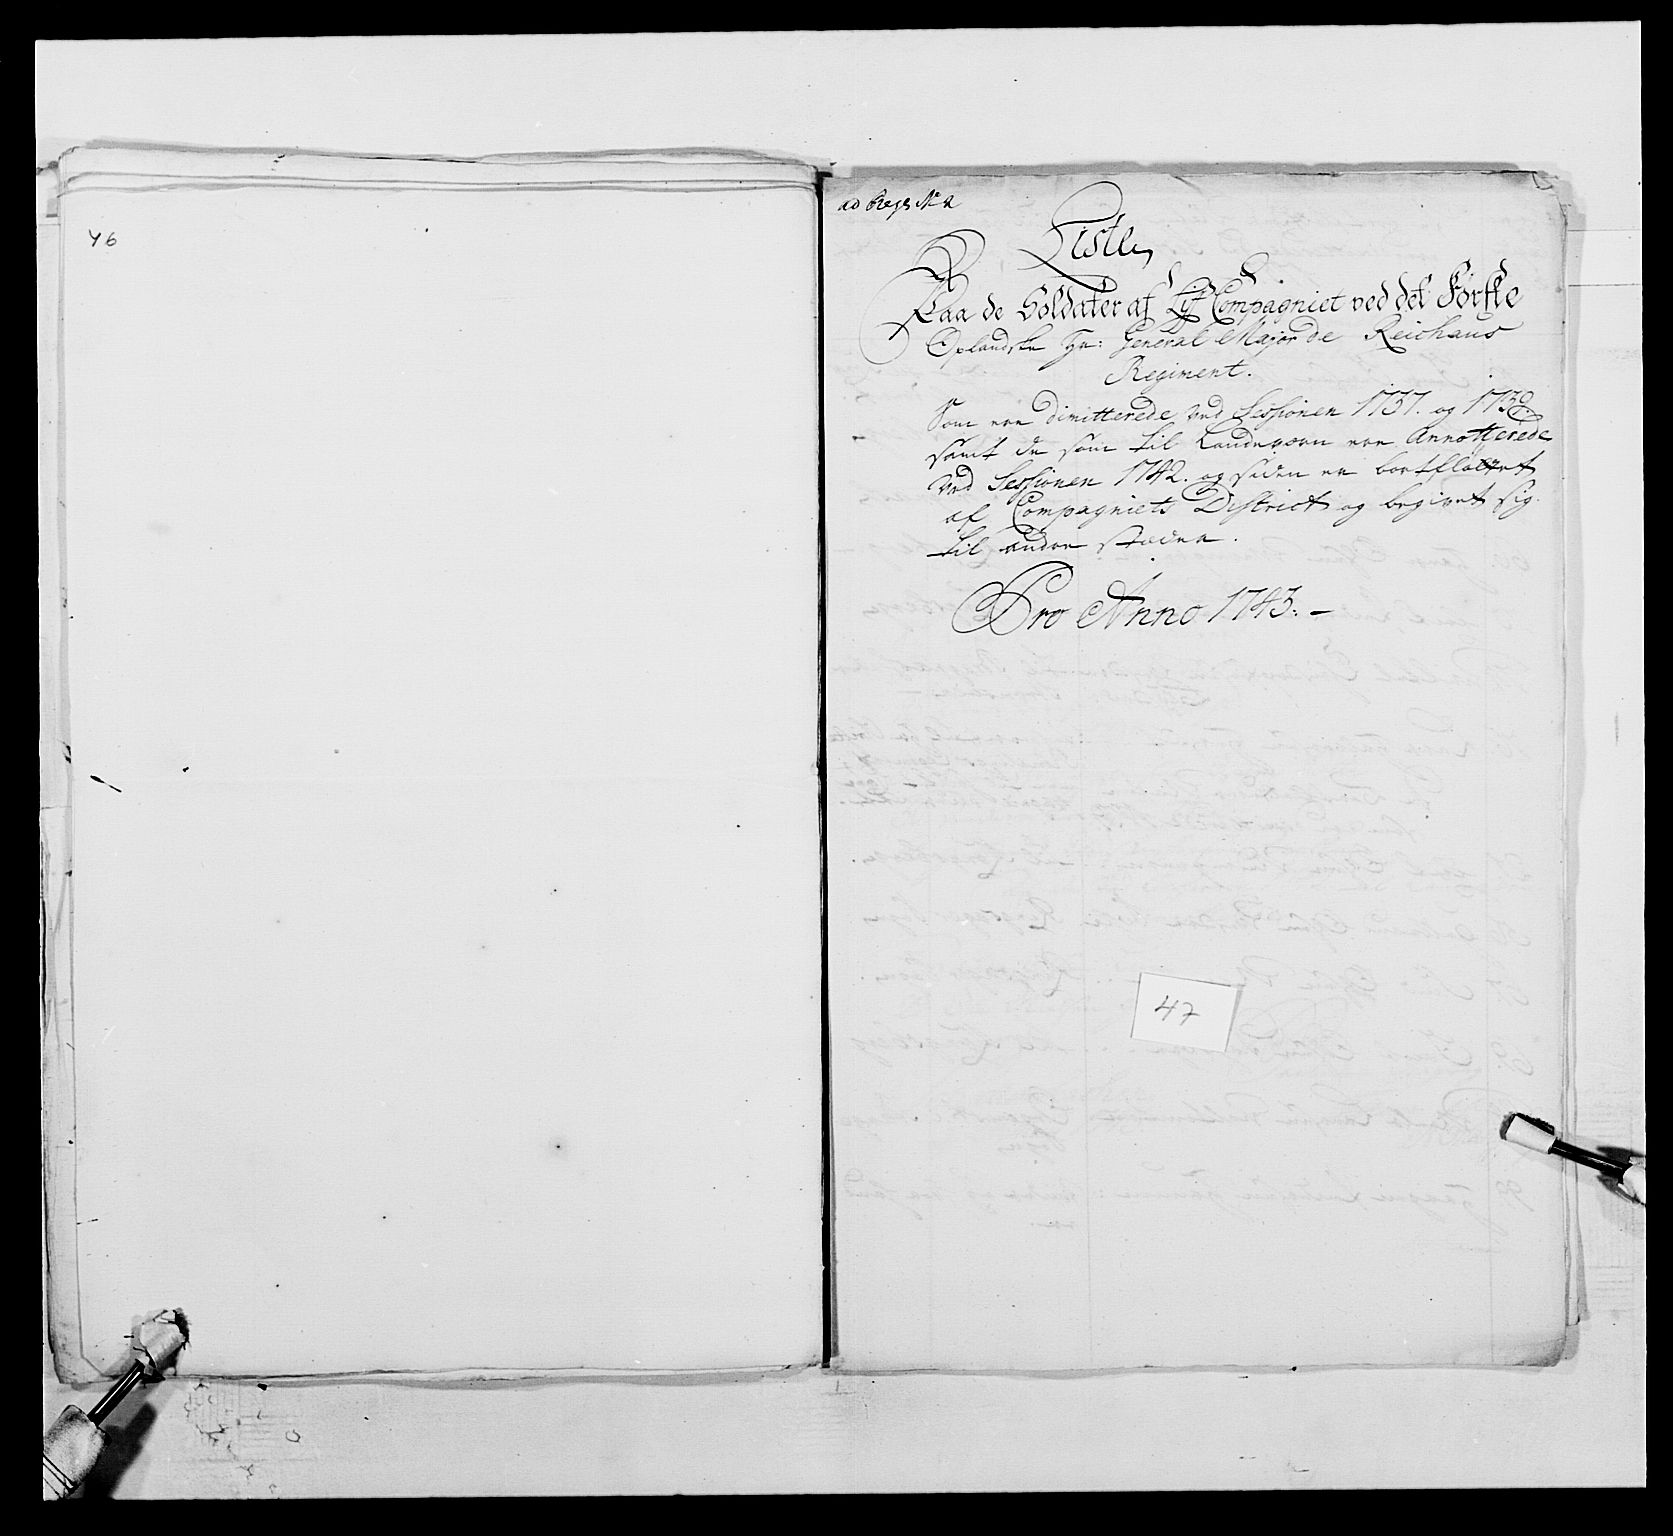 46
ad Reg: No 2
Liste,
Paa de Soldater af Lyf Compagniet ved det Förste
Oplandske Hr: General Major de Reichaus
Regiment.
Som ere dimitterede ved Sessionen 1737. og 1739.
samt de som til Landeværn ere Annotterede
ved Sessionen 1742. og siden er bortfløttet
af Compagniets District og begivet sig
til andre stæder.
Pro Anno 1743: -
47